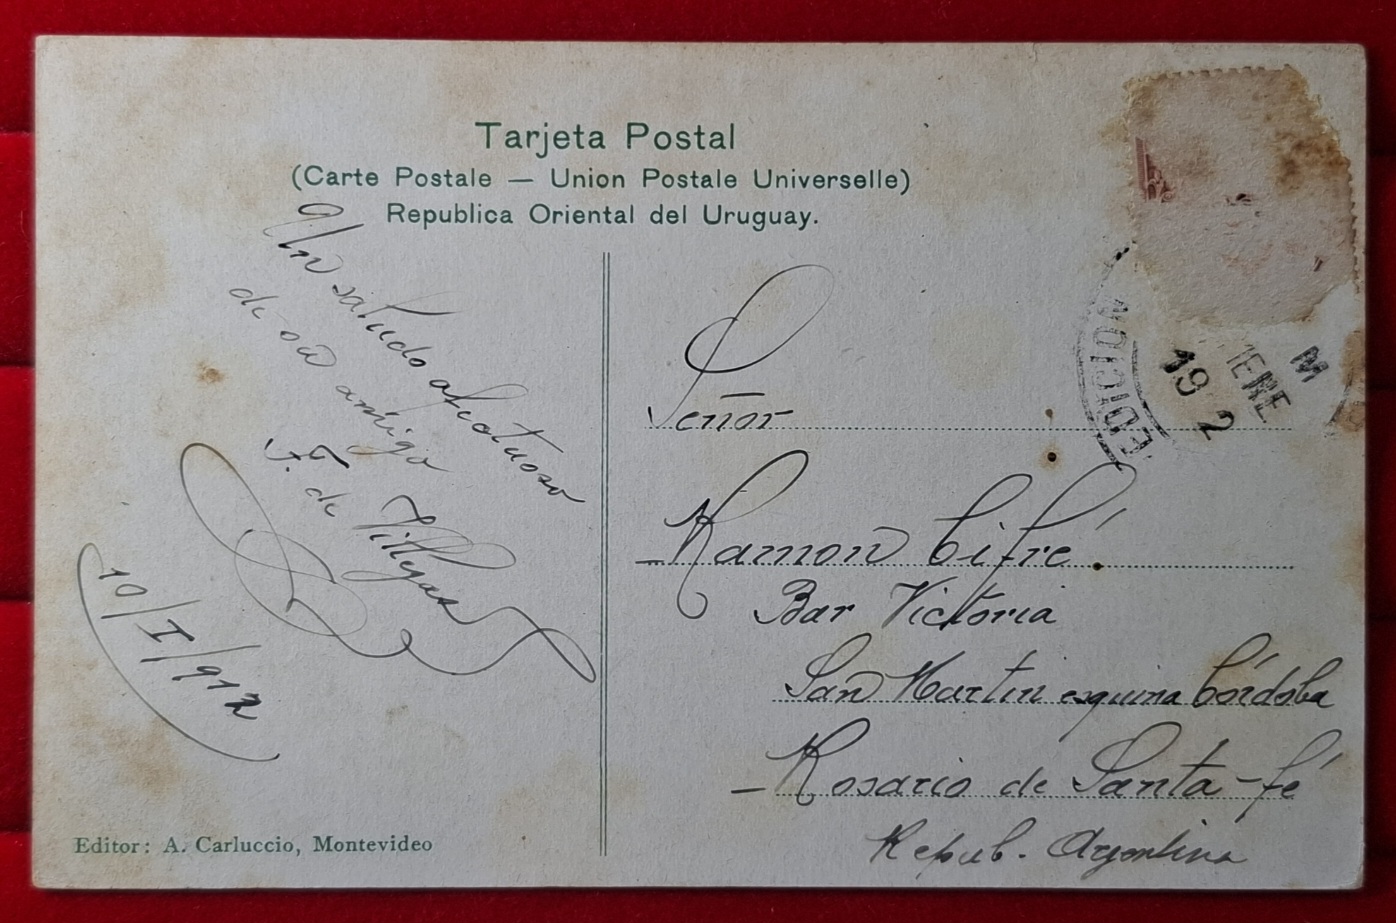 Tarjeta Postal
(Carte Postale — Union Postale Universelle)
Republica Oriental del Uruguay.
Un saludo afectuoso
de su amigo
F. de
10/I/912
Editor: A. Carluccio, Montevideo
Señor
Ramon Cifré.
Bar Victoria
San Martin esquina Córdoba
Rosario de Santa-fé
Repub. Argentina
M
ENE
19 2